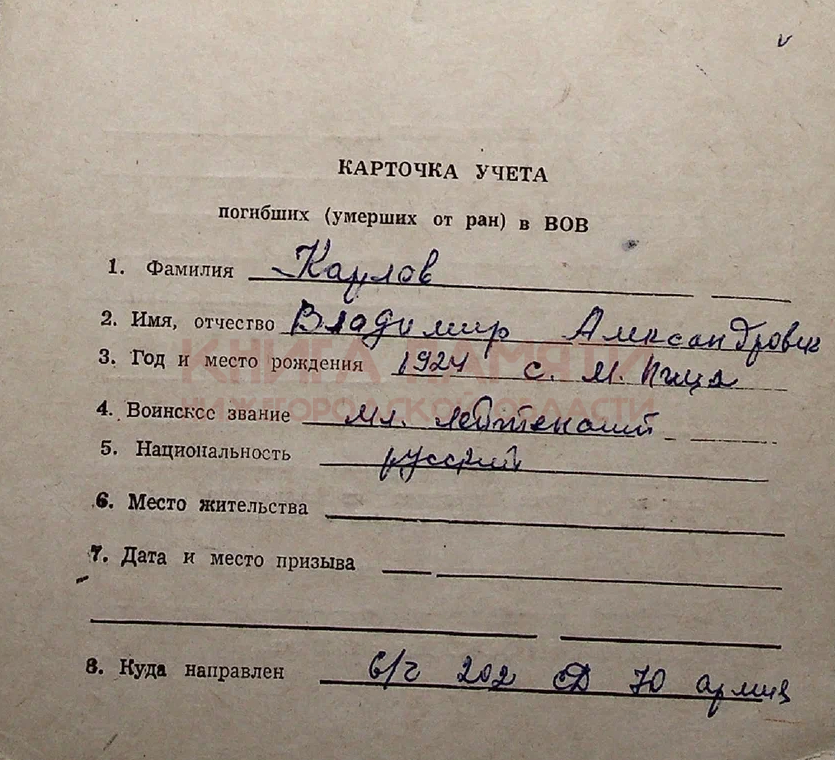 КАРТОЧКА УЧЕТА
погибших (умерших от ран) в ВОВ
1. Фамилия Карлов
2. Имя, отчество Владимир Александрович
3. Год и место рождения 1924 с. М. Пица
КНИГА ПАМЯТИ
НИЖЕГОРОДСКОЙ ОБЛАСТИ
4. Воинское звание мл. лейтенант
5. Национальность русский
6. Место жительства
7. Дата и место призыва
8. Куда направлен в/ч 202 СД 70 армия